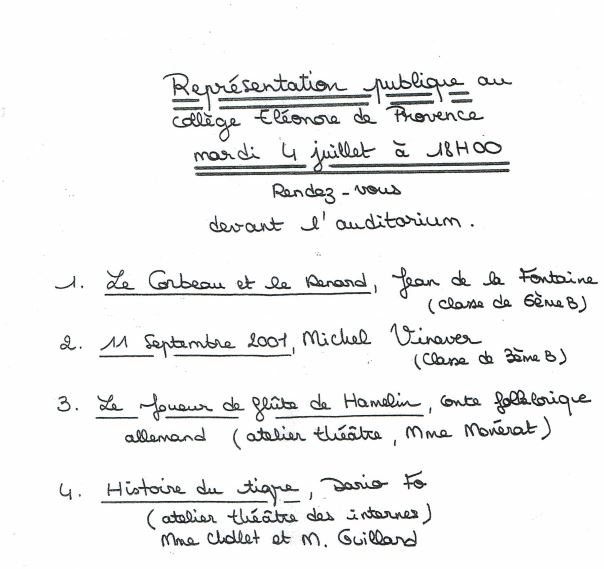 Représentation publique au
collège Eléonore de Provence
mardi 4 juillet à 18H00
Rendez-vous
devant l'auditorium.
1. Le Corbeau et le Renard, Jean de la Fontaine
(Classe de 6ème B)
2. 11 Septembre 2001, Michel Vinaver
(Classe de 3ème B)
3. Le Joueur de flûte de Hamelin, conte folklorique
allemand (atelier théâtre, Mme Monérat)
4. Histoire du tigre, Dario Fo
(atelier théâtre des internes)
Mme Chollet et M. Guillard